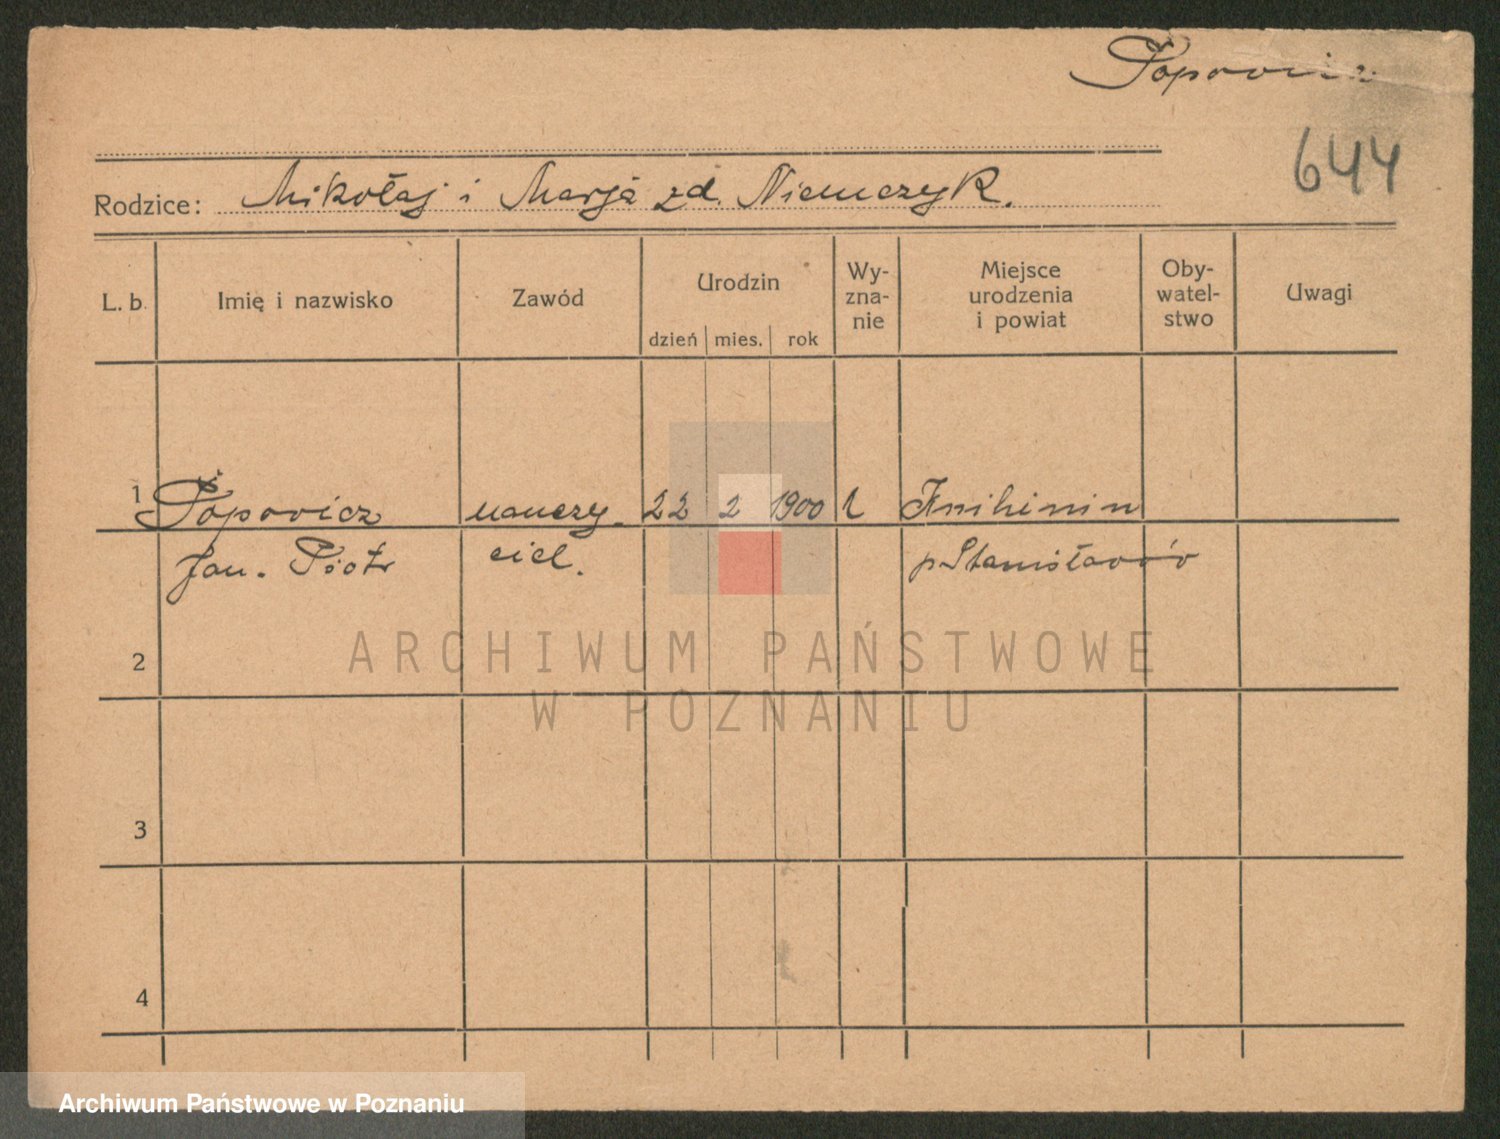 Popowicz
644
Rodzice: Mikołaj i Marja zd. Niemczyk.
L. b. Imię i nazwisko Zawód Urodzin dzień mies. rok Wy-zna-nie Miejsce urodzenia i powiat Oby-watel-stwo Uwagi
1 Popowicz nauczy- 22 2 1900 Knihinin
Jan. Piotr ciel. p Stanisławów
2
ARCHIWUM PAŃSTWOWE
W POZNANIU
3
4
Archiwum Państwowe w Poznaniu